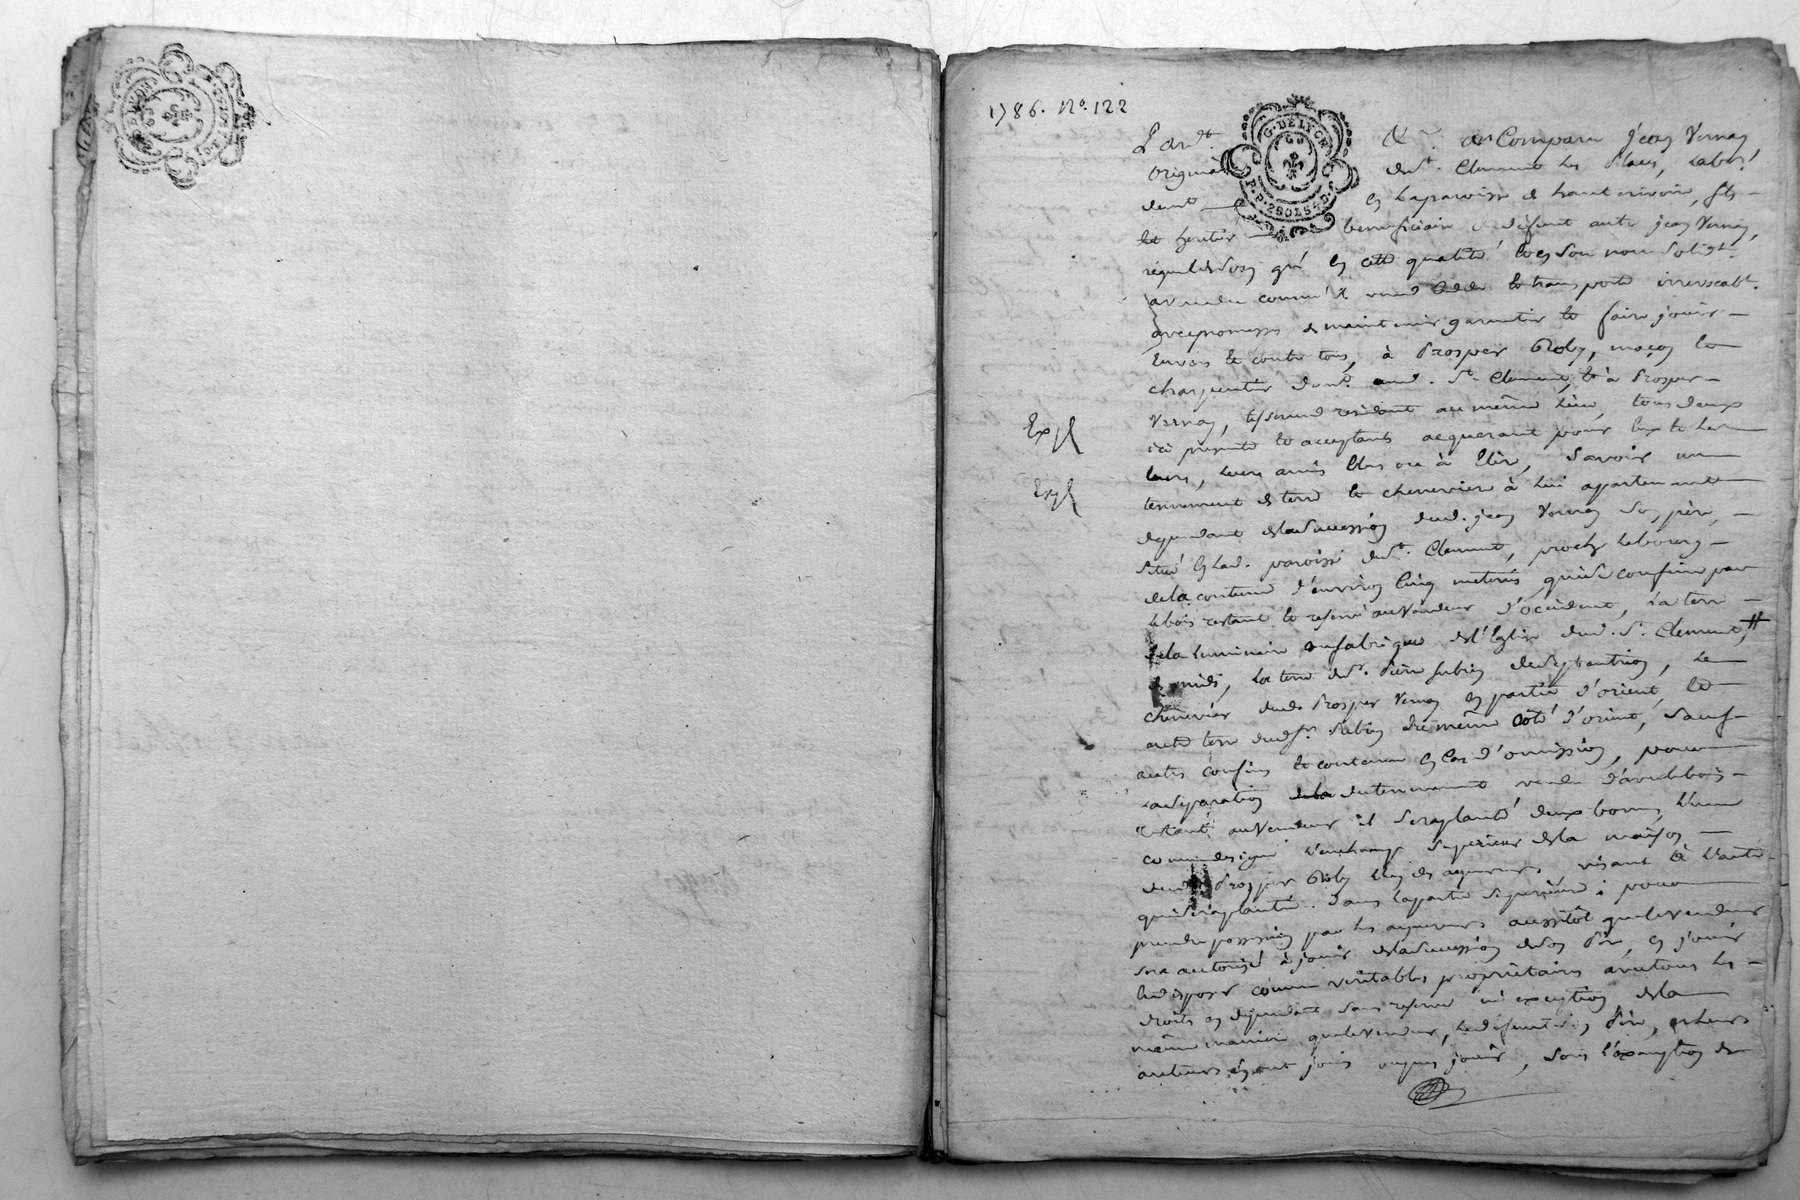 G. DE LYON
1786. N°. 122
G. DE LYON
P.P. 2 SOLS 4 D.
Pardt. & ar Comparu jean Vernay
originaire de St. Clement les Places, labor.
demt en la paroisse de haute rivoire, fils
et heritier beneficiaire de defunt autre jean Vernay,
en cette qualité et en son nom
a vendu comme il vend cede et transporte irrevocablt.
avec promesse de maintenir garantir et faire jouir
envers et contre tous, à Prosper Roby, maçon et
charpentier demt. aud. St. Clement, et à Prosper
Expl
Vernay, tisserand residant au même lieu, tous deux
ici presents et acceptants acquerant pour eux et les
leurs, leurs amis elus ou à elire, savoir un
Expl
tennement de terre et cheneviere à lui apartenant
dependant de la succession dud. jean Vernay son père,
situé en lad. paroisse de St. Clement, proche le bourg
de la contenue d'environ cinq meterés, qui se confine par
le bois restant et reservé au vendeur d'occident, la terre
de la luminaire ou fabrique de l'Eglise dud. St. Clement, #
de midi, la terre de Sr. Pierre de septentrion, le
chenevier dud. Prosper Vernay en partie d'orient, et
autre terre dud. Sr. du même côté d'orient, sauf
autres confins et contenue en cas d'omission, pour
la separation de la du tennement vendu d'avec le bois
restant au vendeur il sera planté deux bornes, l'une
au champ superieur de la maison
dud. Prosper Roby l'un des aquereurs visant à l'autre
qui sera planté dans la partie superieure ; pour
prendre possession par les aquereurs aussitôt que le vendeur
sera autorisé à jouir de la succession de son Père, en jouir
et disposer comme veritables proprietaires avec tous les
droits en dependant sans reserve ni exception, de la
même maniere que le vendeur, led. defunt son Père, et leurs
auteurs en ont joui ou pu jouir, sous l'exception de